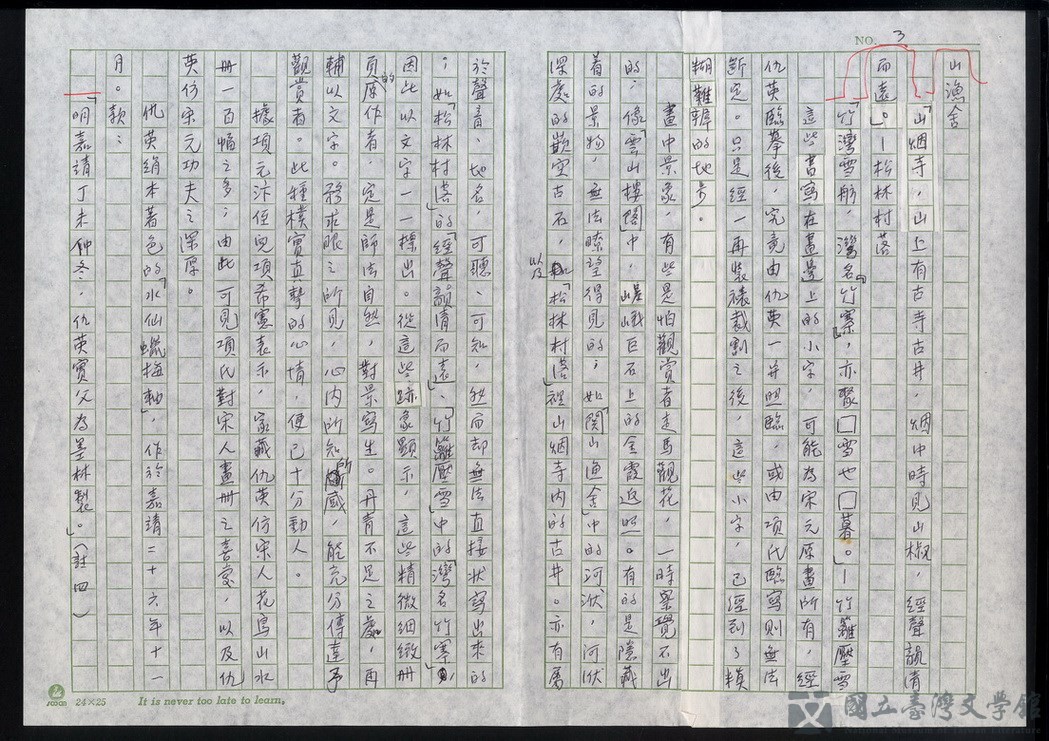 NO. 3
山漁舍
「山烟寺,山上有古寺古井,烟中時見山椒,經聲韻清
而遠」。—松林村落
「竹灣雪舫,灣名『竹寨』,亦聚□雪也□暮。—竹籬壓雪
這些書寫在畫邊上的小字,可能為宋元原畫所有,經
仇英臨摹後,究竟由仇英一并照臨,或由項氏臨寫則無法
斷定。只是經一再裝褙裁割之後,這些小字,已經到了模
糊難辨的地步。
畫中景象,有些是怕觀賞者走馬觀花,一時察覺不出
的;像「雲山樓閣」中,嵯峨巨石上的金霞返照。有的是隱藏
着的景物,無法瞭望得見的;如「関山漁舍」中的河洑,河洑
深處的嵌空古石,以及「松林村落」裡山烟寺內的古井。亦有屬
於聲音、地名,可聽、可知,然而却無法直接狀寫出來的
;如「松林村落」的「經聲韻清而遠」、「竹籬壓雪」中的「灣名竹寨」。
因此以文字一一標出。從這些跡象顯示,這些精微細緻册
頁的原作者,定是師法自然,對景寫生。丹青不足之處,再
輔以文字。務求眼之所見,心內所知所感,能充分傳達予
觀賞者。此種樸實真摯的心情,便已十分動人。
據項元汴侄兒項希憲表示,家藏仇英仿宋人花鳥山水
册一百幅之多;由此可見項氏對宋人畫册之喜愛,以及仇
英仿宋元功夫之深厚。
仇英絹本着色的「水仙蠟梅軸」,作於嘉靖二十六年十一
月。款:
「明嘉靖丁未仲冬,仇英實父為墨林製。」(註四)
24×25 It is never too late to learn.
國立臺灣文學館
National Museum of Taiwan Literature